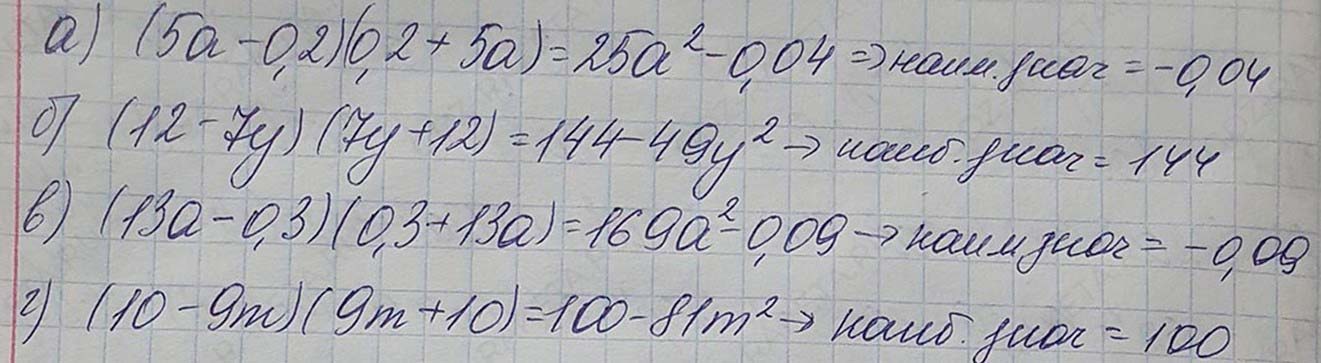 а) (5a - 0,2)(0,2 + 5a) = 25a² - 0,04 ⇒ наим. знач = -0,04
б) (12 - 7y) (7y + 12) = 144 - 49y² → наиб. знач = 144
в) (13a - 0,3) (0,3 + 13a) = 169a² - 0,09 → наим знач = -0,09
г) (10 - 9m) (9m + 10) = 100 - 81m² → наиб. знач = 100